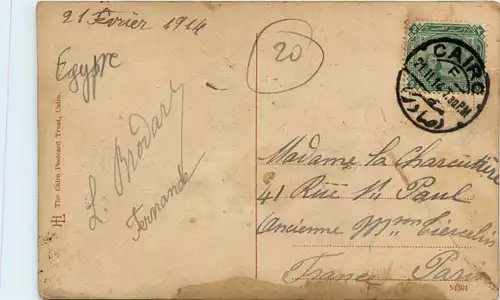 21 Février 1914
Egypte
20
L. Brodard
Fernande
The Cairo Postcard Trust, Cairo.
CAIRO
F
21.II.14. 7.30PM
Madame la Charcutière
41 Rue St Paul
Ancienne Mson Ciercelin
France Paris
51391